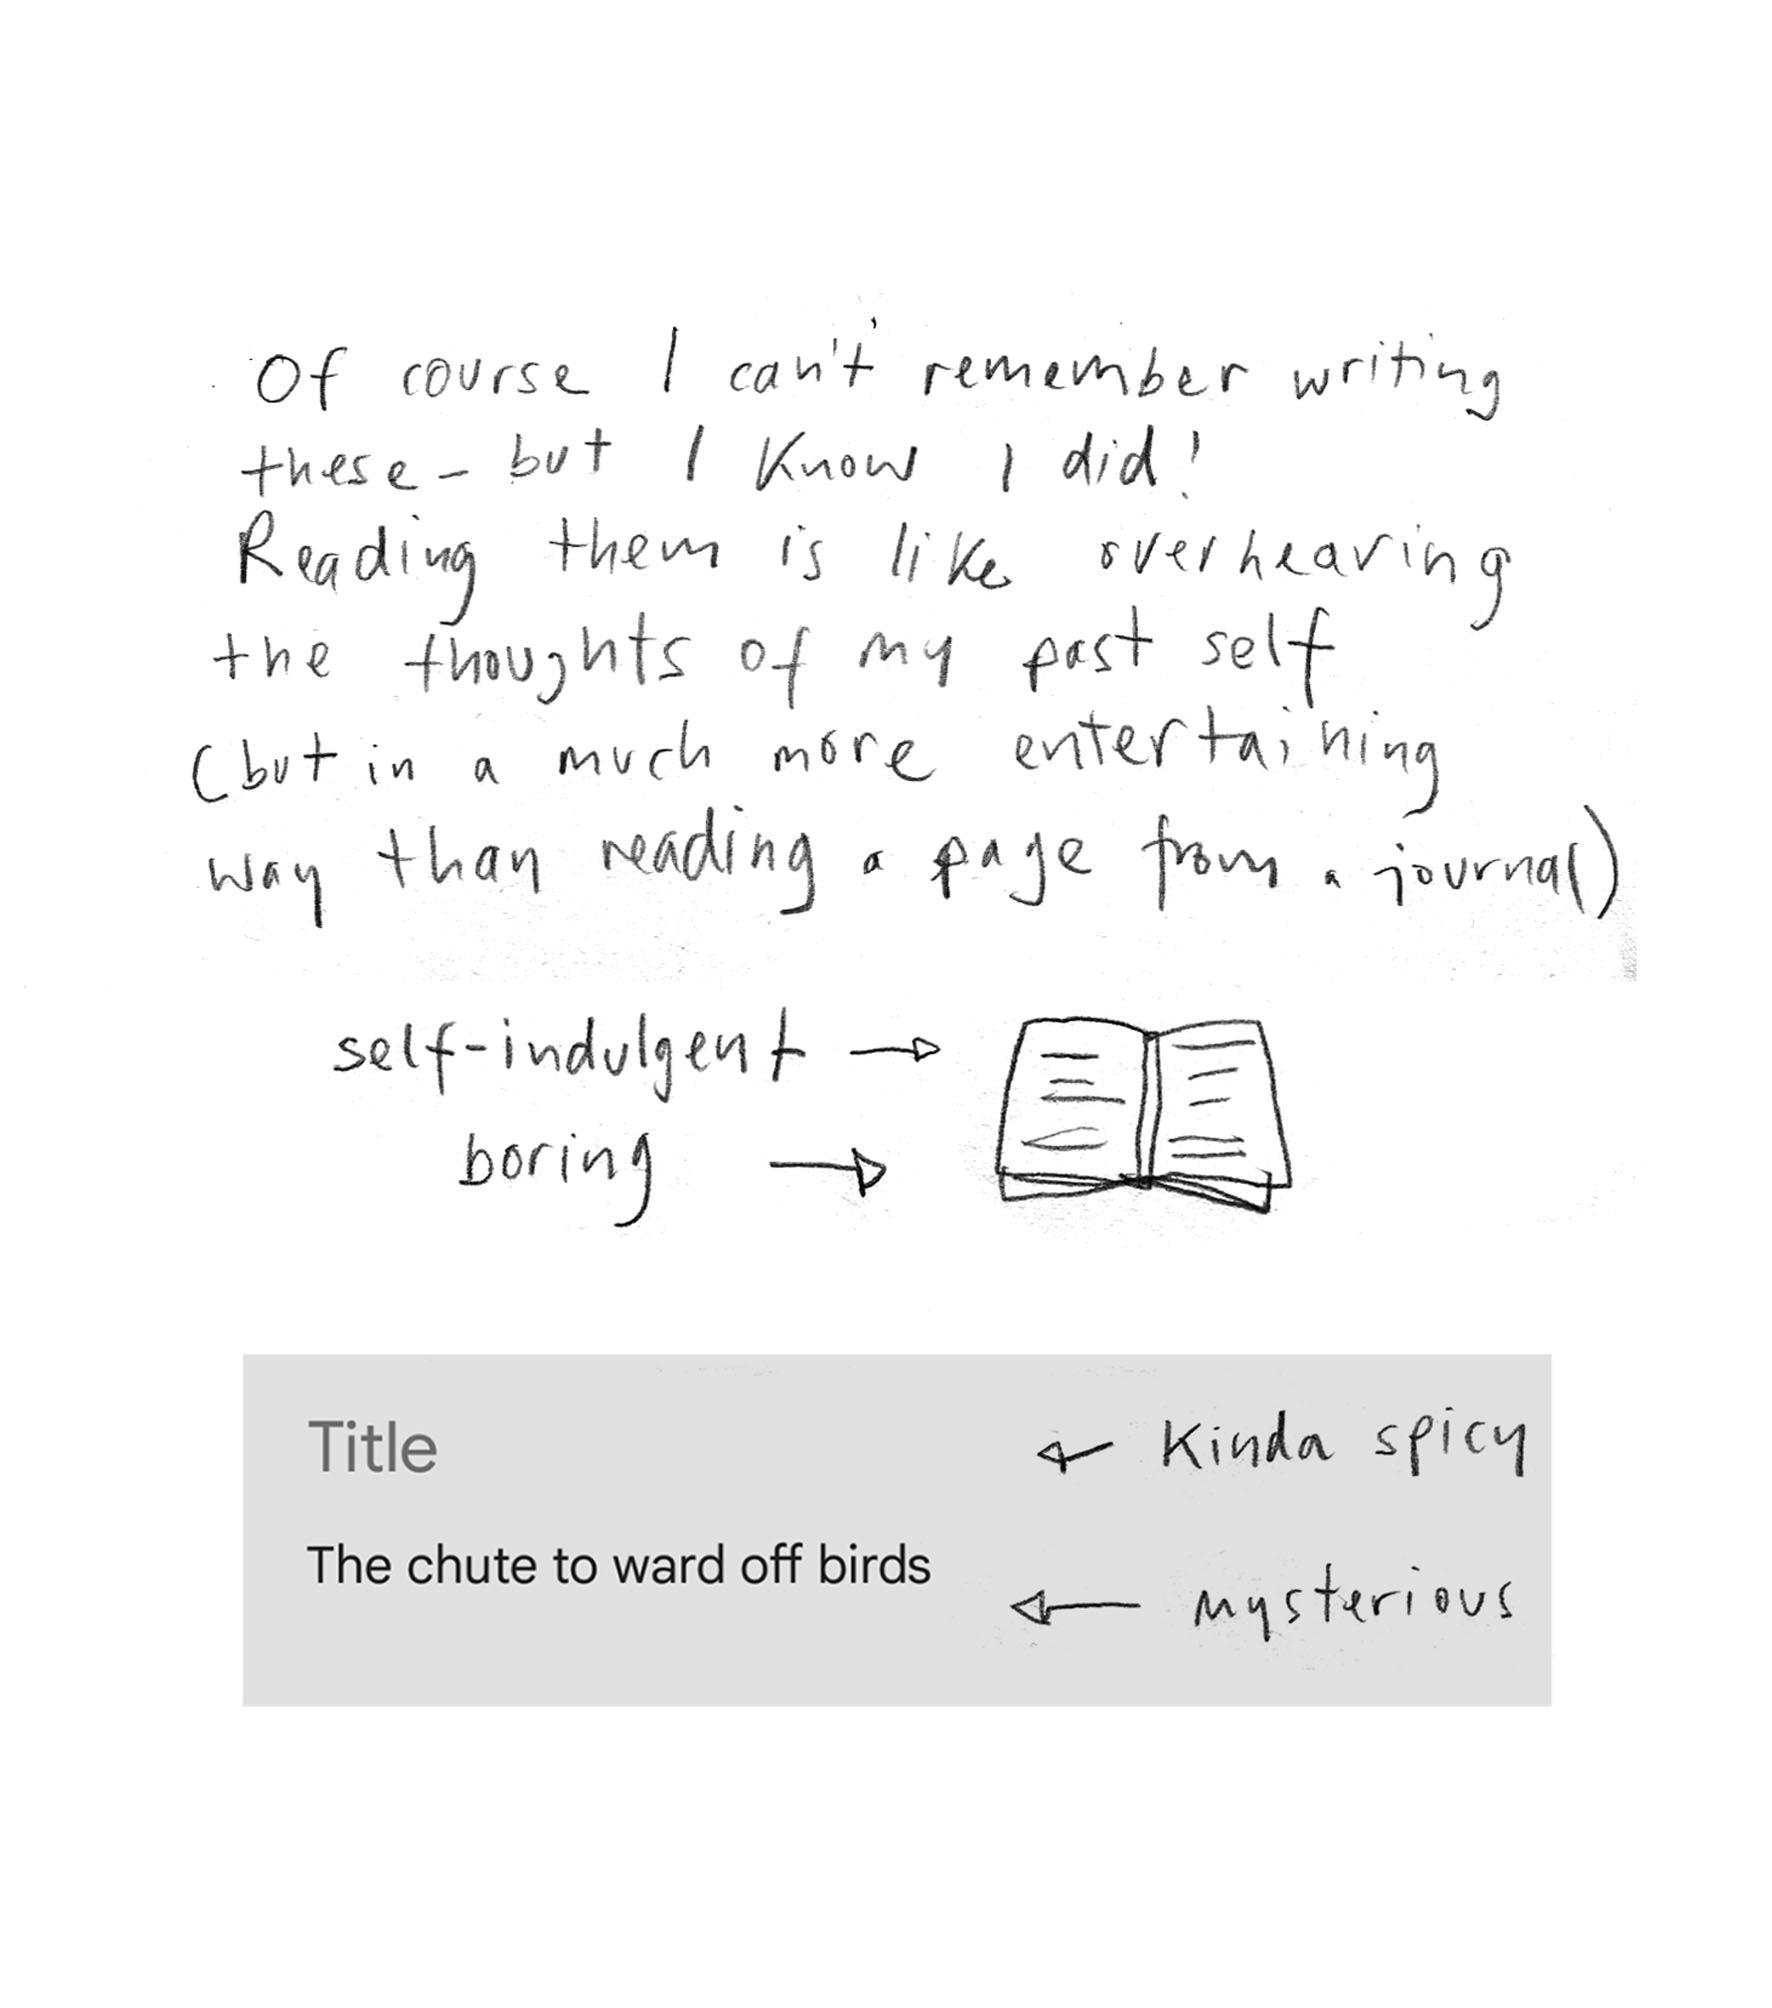 Of course I can't remember writing
these - but I know I did!
Reading them is like overhearing
the thoughts of my past self
(but in a much more entertaining
way than reading a page from a journal)
self-indulgent
boring
Title
Kinda spicy
The chute to ward off birds
mysterious